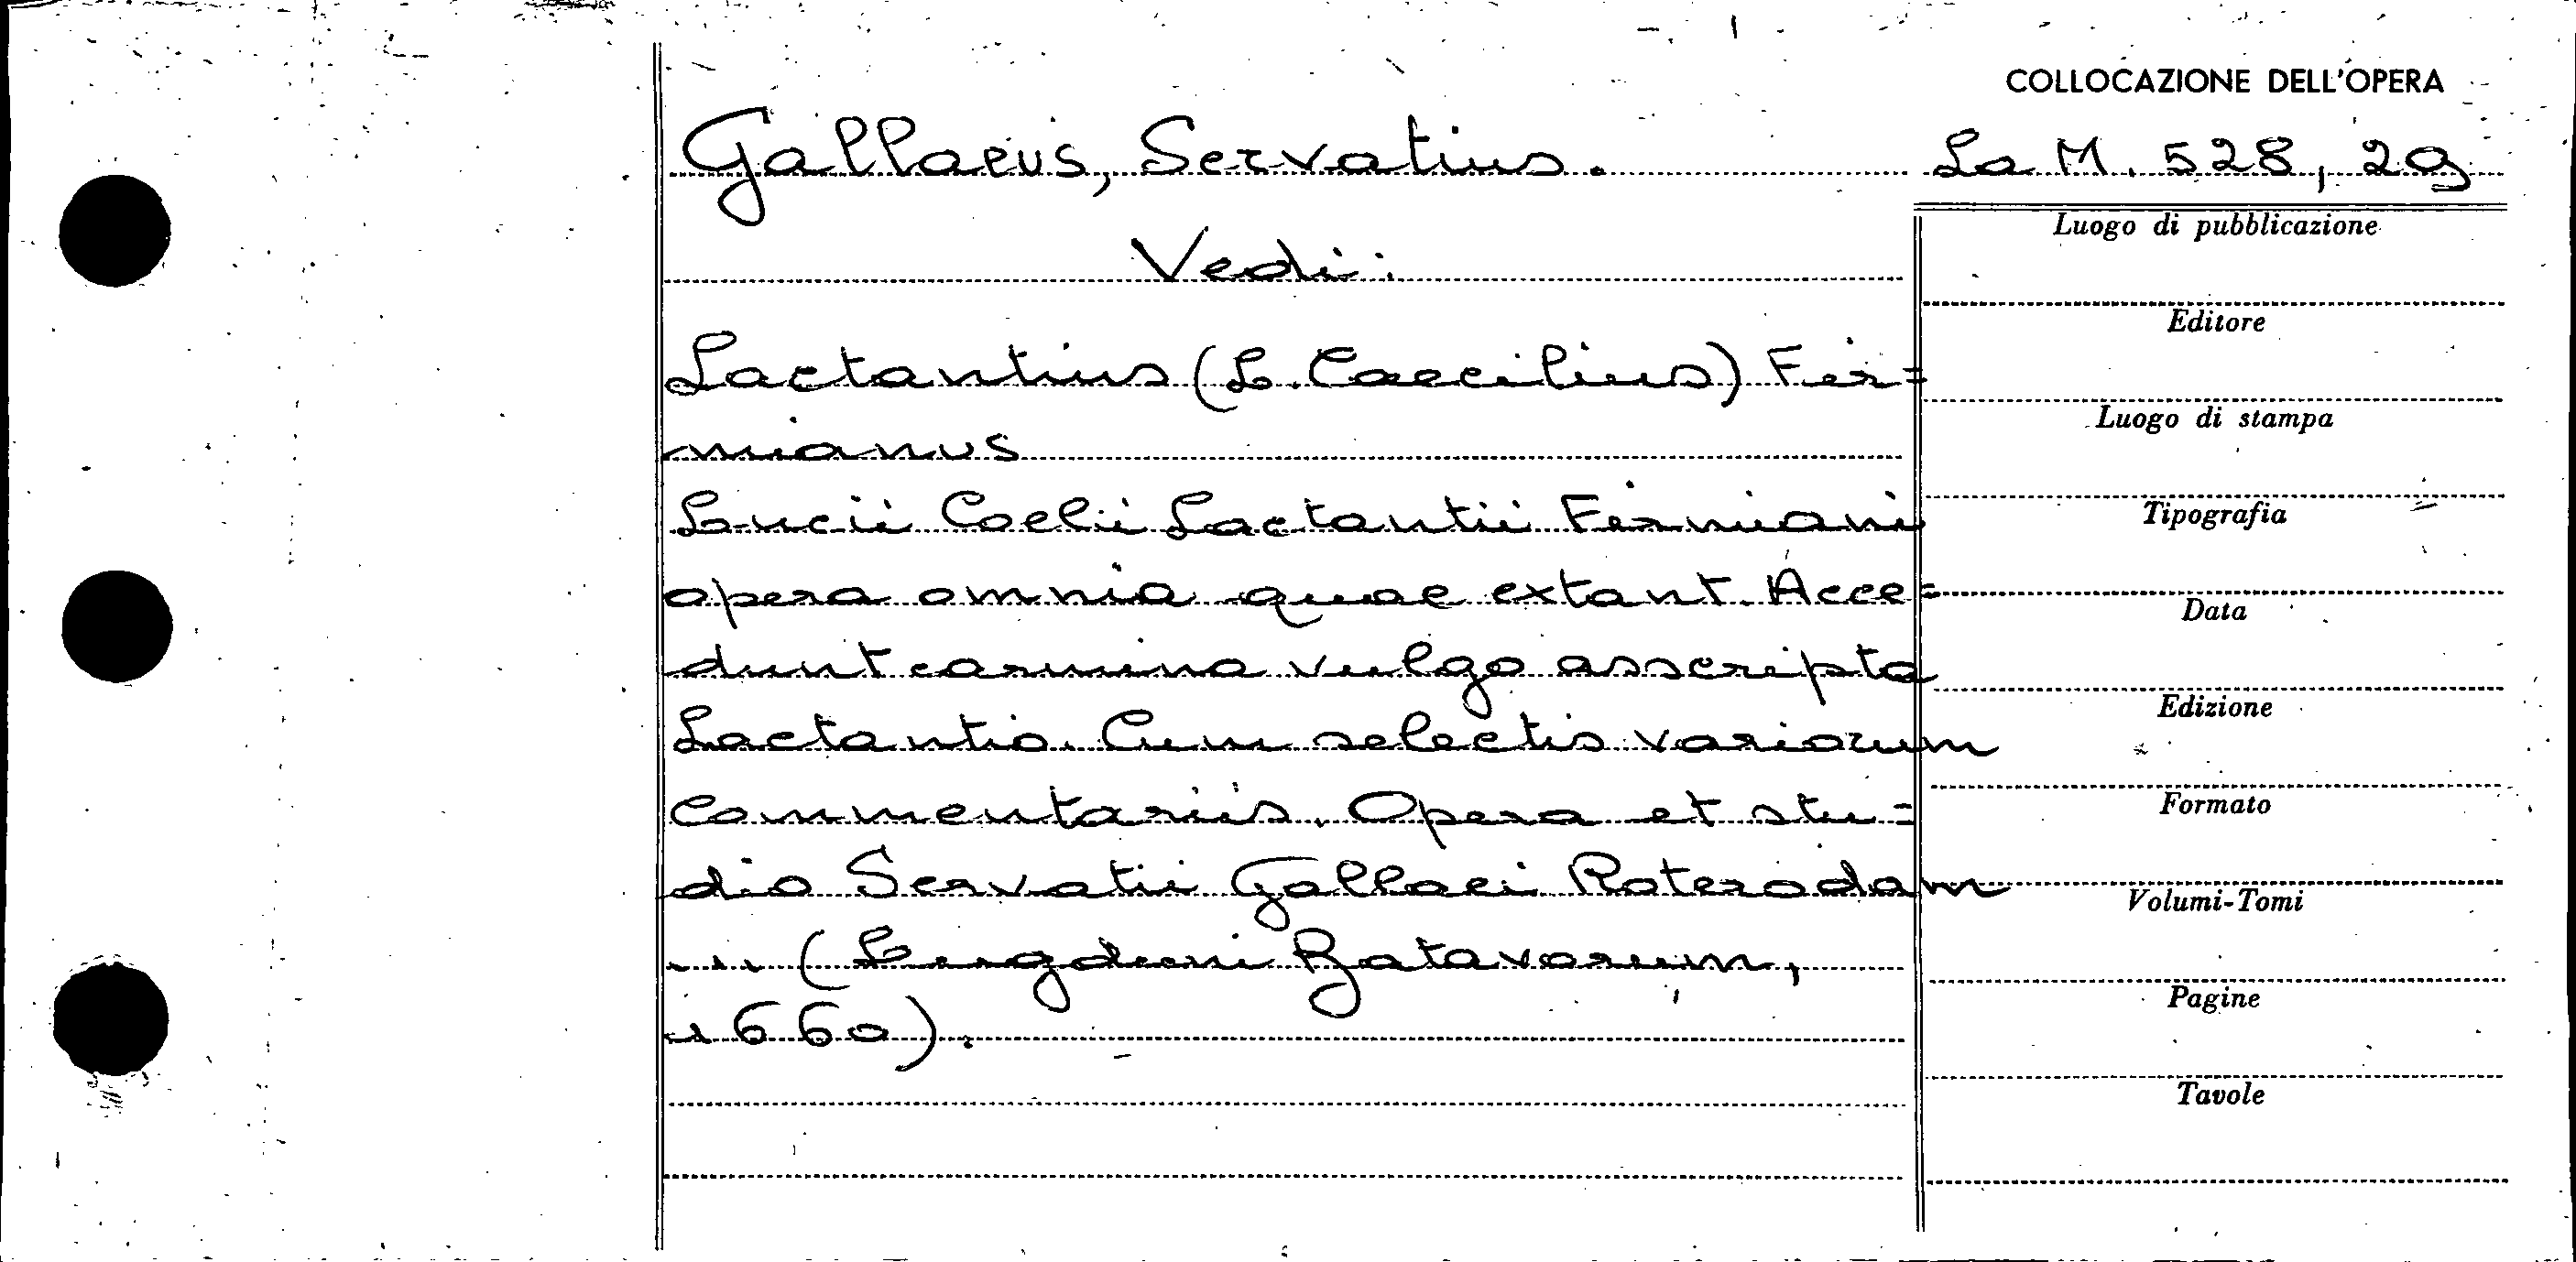 COLLOCAZIONE DELL'OPERA
Gallaeus, Servatius.
La M. 528, 29
Vedi:
Lactantius (L. Caecilius) Fir=
mianus
Lucii Coelii Lactantii Firmiani
opera omnia quae extant. Acce=
dunt carmina vulgo asscripta
Lactantio. Cum selectis variorum
commentariis. Opera et stu=
dio Servatii Gallaei Roterodam
... (Lugduni Batavorum,
1660).
Luogo di pubblicazione
Editore
Luogo di stampa
Tipografia
Data
Edizione
Formato
Volumi-Tomi
Pagine
Tavole